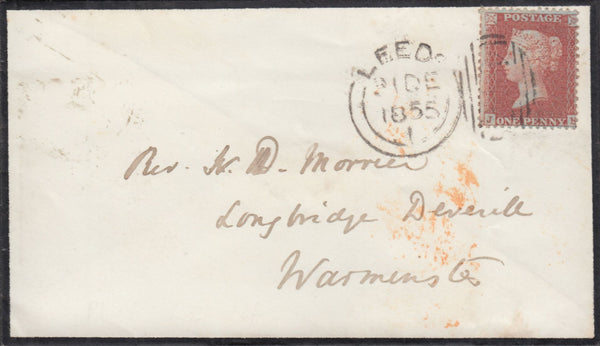 LEEDS
POSTAGE
DE
1855
1
ONE PENNY
Rev. H. D. Morrice
Longbridge Deverill
Warminster